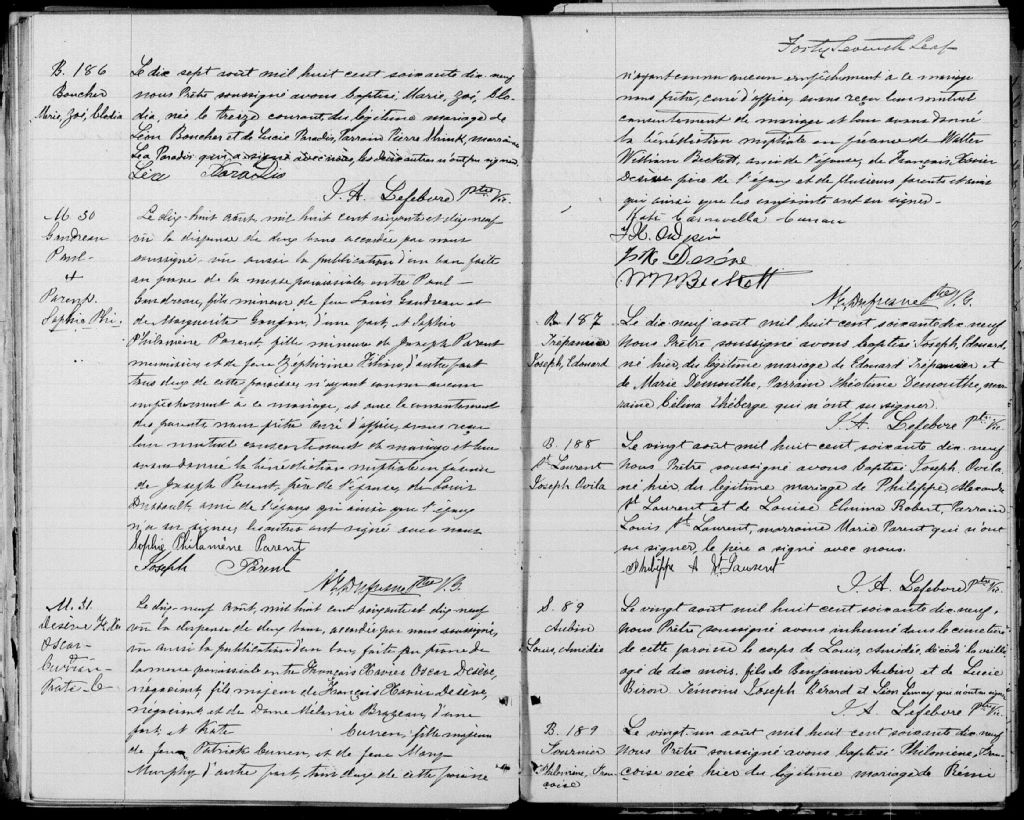 B. 186
Boucher
Marie, Zoé, Clodia
Le dix sept août mil huit cent soixante dix-neuf
nous Prêtre soussigné avons baptisé Marie, Zoé, Clo-
dia, née le treize courant du légitime mariage de
Léon Boucher et de Lucie Paradis, Parrain Pierre Minck, marraine
Léa Paradis qui a signé avec nous, les deux autres n'ont pu signer
Léa Paradis
J. A. Lefebvre Ptre Vic.
M. 30
Gaudreau
Paul
+
Parent
Sophie Phi-
Le dix-huit août, mil huit cent soixante et dix neuf
vu la dispense de deux bans accordée par nous
soussigné, vu aussi la publication d'un ban faite
au prône de la messe paroissiale, entre Paul
Gaudreau, fils mineur de feu Louis Gaudreau et
de Marguerite d'une part, et Sophie
Philomène Parent, fille mineure de Joseph Parent
menuisier et de feue Zéphirine d'autre part
tous deux de cette paroisse, n'ayant connu aucun
empêchement à ce mariage, et avec le consentement
des parents nous prêtre curé d'office, avons reçu
leur mutuel consentement de mariage et leur
avons donné la bénédiction nuptiale en présence
de Joseph Parent, père de l'épouse, de Louis
Dussault, ami de l'époux qui ainsi que l'époux
n'a su signer, les autres ont signé avec nous
Sophie Philomène Parent
Joseph Parent
N. Z. Dufresne Ptre V. G.
M. 31.
Desève F. X.
Oscar
+
Curren
Kate C
Le dix-neuf Août, mil huit cent soixante et dix neuf
vu la dispense de deux bans, accordée par nous soussigné,
vu aussi la publication d'un ban, faite au prône de
la messe paroissiale entre François Xavier Oscar Desève,
négociant, fils majeur de François Xavier Desève,
négociant et de Dame Mélanie Brazeau, d'une
part, et Kate Curren, fille majeure
de feu Patrick Curren, et de feue Mary
Murphy d'autre part, tous deux de cette paroisse
Forty Seventh Leaf
n'ayant connu aucun empêchement à ce mariage
nous prêtre, curé d'office, avons reçu leur mutuel
consentement de mariage et leur avons donné
la bénédiction nuptiale en présence de Walter
William Beckett, ami de l'épouse, de François Xavier
Desève père de l'époux et de plusieurs parents et amis
qui ainsi que les conjoints ont su signer.
Kate Curran
F. X. O. Desève
F. X. Desève
W W Beckett
N. Z. Dufresne Ptre V. G.
B. 187
Trépannier
Joseph, Edouard
Le dix-neuf août mil huit cent soixante dix-neuf
Nous Prêtre soussigné avons baptisé Joseph, Edouard,
né hier, du légitime mariage de Edouard Trépannier et
de Marie Demouthe, Parrain Théotime Demouthe, mar-
raine Célina Théberge qui n'ont su signer.
J. A. Lefebvre Ptre Vic.
B. 188
St Laurent
Joseph Ovila
Le vingt août mil huit cent soixante dix-neuf
Nous Prêtre soussigné avons baptisé Joseph, Ovila,
né hier, du légitime mariage de Philippe, Alexandre
St Laurent et de Louise Elmina Robert, Parrain
Louis St Laurent, marraine Marie Parent qui n'ont
su signer, le père a signé avec nous.
Philippe A St Laurent
J. A. Lefebvre Ptre Vic.
S. 89
Aubin
Louis, Amédée
Le vingt août mil huit cent soixante dix-neuf,
Nous Prêtre soussigné avons inhumé dans le cimetière
de cette paroisse le corps de Louis, Amédée, décédé la veille
agé de dix mois, fils de Benjamin Aubin et de Lucie
Biron. Témoins Joseph Bérard et Léon qui n'ont su signer
J. A. Lefebvre Ptre Vic.
B. 189
Fournier
Philomène, Fran-
coise
Le vingt-un août mil huit cent soixante dix-neuf
Nous Prêtre soussigné avons baptisé Philomène, Fran-
coise née hier du légitime mariage de Rémi